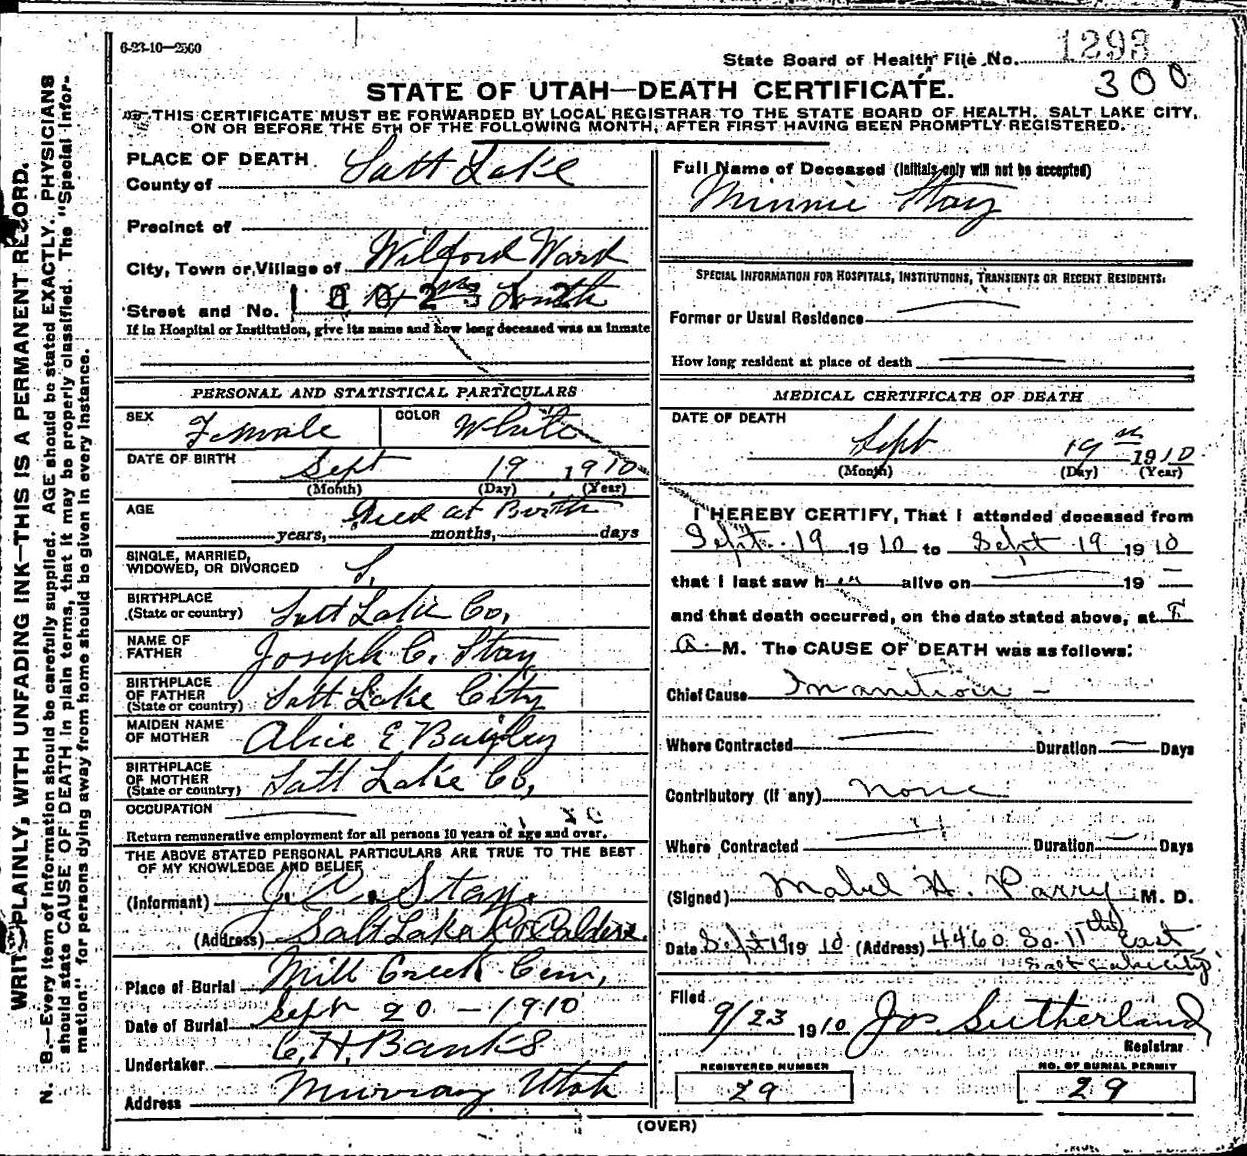 6-23-10—2500
State Board of Health File No. 1293
300
STATE OF UTAH—DEATH CERTIFICATE.
THIS CERTIFICATE MUST BE FORWARDED BY LOCAL REGISTRAR TO THE STATE BOARD OF HEALTH, SALT LAKE CITY,
ON OR BEFORE THE 5TH OF THE FOLLOWING MONTH, AFTER FIRST HAVING BEEN PROMPTLY REGISTERED.
WRITE PLAINLY, WITH UNFADING INK—THIS IS A PERMANENT RECORD.
N. B.—Every item of information should be carefully supplied. AGE should be stated EXACTLY. PHYSICIANS
should state CAUSE OF DEATH in plain terms, that it may be properly classified. The "Special Infor-
mation" for persons dying away from home should be given in every instance.
PLACE OF DEATH
County of Salt Lake
Precinct of
City, Town or Village of Wilford Ward
Street and No. South
1002312
If in Hospital or Institution, give its name and how long deceased was an inmate
PERSONAL AND STATISTICAL PARTICULARS
SEX Female COLOR White
DATE OF BIRTH Sept 19 1910
(Month) (Day) (Year)
AGE Died at Birth
years, months, days
SINGLE, MARRIED,
WIDOWED, OR DIVORCED S.
BIRTHPLACE
(State or country) Salt Lake Co,
NAME OF
FATHER Joseph C. Stay
BIRTHPLACE
OF FATHER
(State or country) Salt Lake City
MAIDEN NAME
OF MOTHER Alice E Bagley
BIRTHPLACE
OF MOTHER
(State or country) Salt Lake Co,
OCCUPATION
Return remunerative employment for all persons 10 years of age and over.
THE ABOVE STATED PERSONAL PARTICULARS ARE TRUE TO THE BEST
OF MY KNOWLEDGE AND BELIEF
(Informant) J. C. Stay.
(Address) Salt Lake Co
Place of Burial Mill Creek Cem,
Date of Burial Sept 20 - 1910
Undertaker C. H. Banks
Address Murray Utah
Full Name of Deceased (Initials only will not be accepted)
Minnie Stay
SPECIAL INFORMATION FOR HOSPITALS, INSTITUTIONS, TRANSIENTS OR RECENT RESIDENTS:
Former or Usual Residence
How long resident at place of death
MEDICAL CERTIFICATE OF DEATH
DATE OF DEATH
Sept 19th 1910
(Month) (Day) (Year)
I HEREBY CERTIFY, That I attended deceased from
Sept. 19 1910 to Sept 19 1910
that I last saw her alive on 19
and that death occurred, on the date stated above, at
a. M. The CAUSE OF DEATH was as follows:
Chief Cause Inanition -
Where Contracted Duration Days
Contributory (if any) none
Where Contracted Duration Days
(Signed) Mabel A. Parry M. D.
Date Sept 19 1910 (Address) 4460 So. 11th East
Salt Lake City
Filed
9/23 1910 Jos Sutherland
Registrar
REGISTERED NUMBER
29
NO. OF BURIAL PERMIT
29
(OVER)